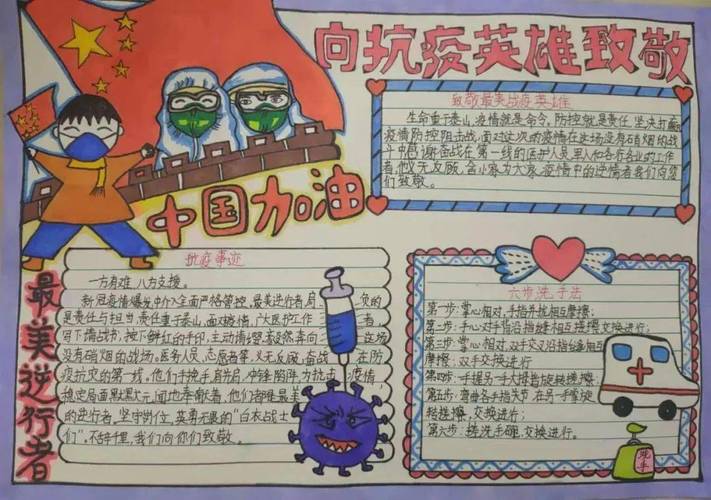 向抗疫英雄致敬
致敬最美战疫英雄
生命重于泰山,疫情就是命令,防控就是责任 坚决打赢
疫情防控阻击战,面对这次的疫情在这场没有硝烟的战
斗中感谢奋战在第一线的医护人员、军人和各行各业的工作
者,他义无反顾,舍小家为大家,疫情中的逆行者我们向您
们致敬。
中国加油
最美逆行者
抗疫事迹
一方有难,八方支援。
新冠疫情爆发中 全面严格管控,最美逆行者肩 负的
是责任与担当,责任重于泰山,面对疫情,广大医护工作 者
写下请战书,按下鲜红的手印,主动请 毅然奔向 这场
没有硝烟的战场。医务人员,志愿者等,义无反顾,奋战 在防
疫抗灾的第一线。他们手挽手肩并肩,冲锋陷阵为抗击 疫情,
稳定局面默默无闻地奉献着,他们都是最美
的逆行者,坚守岗位,英勇无畏的“白衣战士
们”。不辞千里,我们向你们致敬。
六步洗手法
第一步:掌心相对,手指并拢相互摩擦;
第二步:手心对手背沿指缝相互搓擦,交换进行;
第三步:掌心相对,双手交叉沿指缝相互
摩擦,双手交换进行
第四步:一手握另一手大拇指旋转搓擦,
第五步:弯曲各手指关节,在另一手掌心旋
转搓擦,交换进行;
第六步:搓洗手腕,交换进行。
洗手